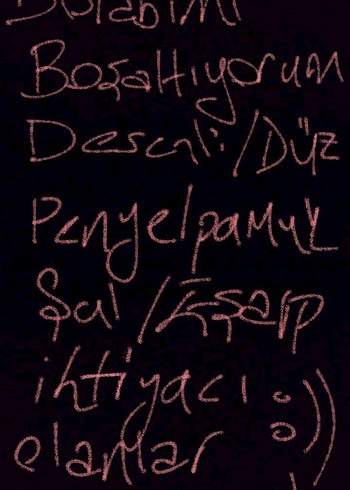 Dolabımı
Boşaltıyorum
Desenli/Düz
Penye/pamuk
Şal/Eşarp
ihtiyacı :))
olanlar